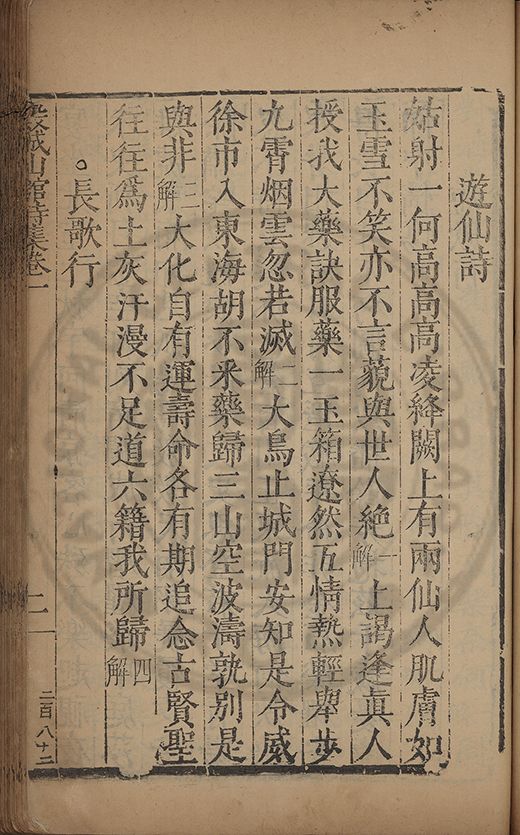 遊仙詩
姑射一何高高高凌絳闕上有兩仙人肌膚如
玉雪不笑亦不言藐與世人絕一解上謁逢眞人
授我大藥訣服藥一玉箱遼然五情熱輕舉步
九霄烟雲忽若滅二解大鳥止城門安知是令威
徐巿入東海胡不釆藥歸三山空波濤孰別是
與非三解大化自有運壽命各有期追念古賢聖
往往爲土灰汗漫不足道六籍我所歸四解
長歌行
穀城山館詩集卷一
二
二百八十二